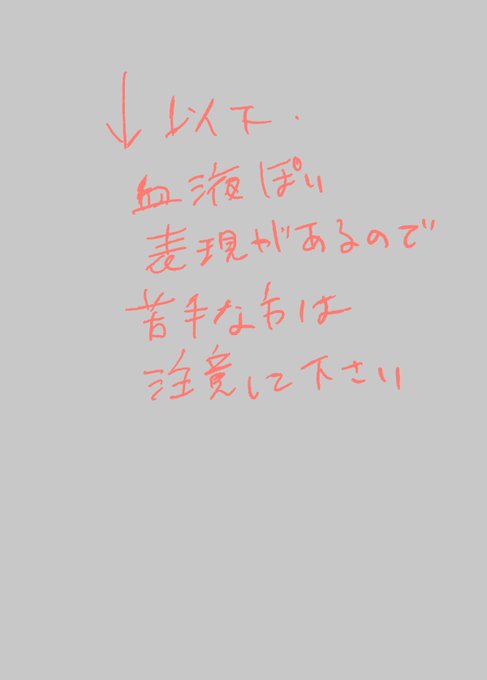 ↓以下.
血液ぽい
表現があるので
苦手な方は
注意して下さい